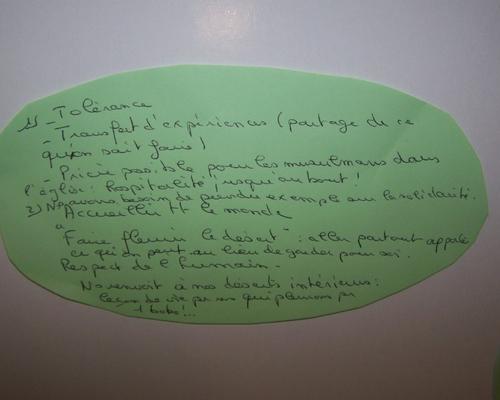 1) - Tolérance
- Transfert d'expériences (partage de ce
qu'on sait faire)
- Prière possible pour les musulmans dans
l'église: hospitalité jusqu'au bout!
2) Ns avons besoin de prendre exemple sur la solidarité.
Accueillir tt le monde
"Faire fleurir le désert": aller partout
ce qu'on peut au lieu de garder pour soi.
Respect de l'humain.
Ns renvoit à nos déserts intérieurs:
leçon de vie par ns qui pleurons pr
1 bobo!...